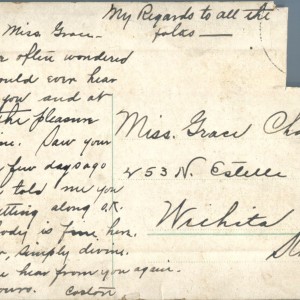 My Regards to all the
folks—
Miss Grace—
often wondered
ould ever hear
you and at
the pleasure
ine. Saw your
few days ago
told me you
etting along O.K.
ody is fine here.
, Simply divine.
e hear from you again.
ours.
Miss. Grace Cha
453 N. Estelle
Wichita